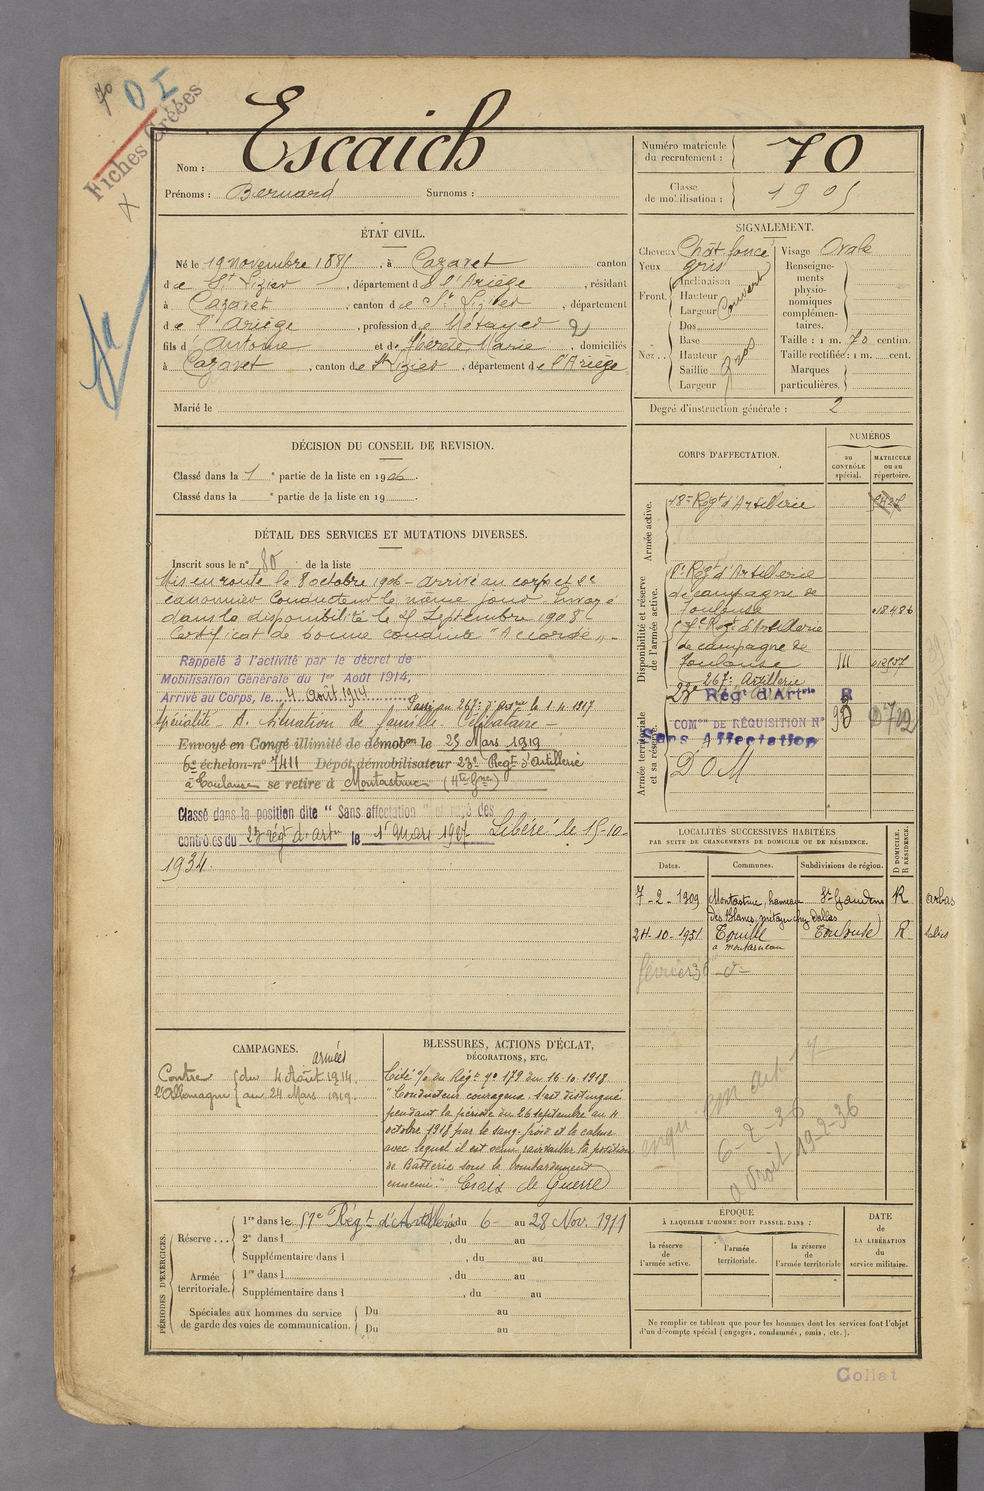 70
O I
Fiches Créées
Nom : Escaich
Prénoms : Bernard Surnoms :
Numéro matricule du recrutement : 70
Classe de mobilisation : 1905
ÉTAT CIVIL.
Né le 19 novembre 1885, à Cazaret canton
de St Lizier, département de l'Ariège, résidant
à Cazaret, canton de St Lizier, département
de l'Ariège, profession de Métayer
fils d' Antoine et de Thérèse Marie, domiciliés
à Cazaret, canton de St Lizier, département de l'Ariège
Marié le
SIGNALEMENT.
Cheveux Chât. foncé
Yeux gris
Front. Inclinaison
Hauteur
Largeur
Couvert
Nez. Dos
Base
Hauteur
Saillie
Largeur
Gros
Visage Ovale
Renseignements physionomiques complémentaires.
Taille : 1 m. 70 centim.
Taille rectifiée : 1 m. cent.
Marques particulières.
Degré d'instruction générale : 2
DÉCISION DU CONSEIL DE REVISION.
Classé dans la 1e partie de la liste en 1906
Classé dans la e partie de la liste en 19
DÉTAIL DES SERVICES ET MUTATIONS DIVERSES.
Inscrit sous le n° 80 de la liste
Mis en route le 8 octobre 1906 - arrivé au corps et 2e
canonnier conducteur le même jour. Envoyé
dans la disponibilité le 25 Septembre 1908
Certificat de bonne conduite "Accordé".
Rappelé à l'activité par le décret de
Mobilisation Générale du 1er Août 1914,
Arrivé au Corps, le 4 Août 1914
Passé au 267e d'Artie le 1.4.1917
Spécialité A. Situation de famille Célibataire
Envoyé en Congé illimité de démobon le 25 Mars 1919
6e échelon-n° 7411 Dépôt démobilisateur 23e Régt d'Artillerie
à Toulouse se retire à Montastruc (Hte Gne)
Classé dans la position dite "Sans affectation" et rayé des
contrôles du 23 régt d'artie le 1er Mars 1927 Libéré le 15-10-
1934.
CORPS D'AFFECTATION.
NUMÉROS
au CONTRÔLE spécial.
MATRICULE ou au répertoire.
Armée active.
18e Régt d'Artillerie
Disponibilité et réserve de l'armée active.
d'Artillerie
de campagne de
Toulouse 018486
57e Régt d'Artillerie
de campagne de
Toulouse III
267e Artillerie
Armée territoriale et sa réserve.
23e Régt d'Artie
COMon DE RÉQUISITION N°
Sans Affectation
DOM
LOCALITÉS SUCCESSIVES HABITÉES
PAR SUITE DE CHANGEMENTS DE DOMICILE OU DE RÉSIDENCE.
Dates. Communes. Subdivisions de région. D DOMICILE. R RÉSIDENCE.
7-2-1909 Montastruc, hameau St Gaudens R arbas
des Blancs, métayer chez Dallas
24-10-1931 Touille Toulouse R Salies
février 36 -d°-
6-2-36
19-2-36
CAMPAGNES.
armées
Contre du 4 Août 1914.
l'Allemagne au 24 Mars 1919.
BLESSURES, ACTIONS D'ÉCLAT,
DÉCORATIONS, ETC.
Cité o/ du Régt n° 179 du 16.10.1918
"Conducteur courageux, s'est distingué
pendant la période du 26 septembre au 4
octobre 1918 par le sang-froid et le calme
avec lequel il est venu ravitailler la position
de Batterie sous le bombardement
ennemi." Croix de Guerre
PÉRIODES D'EXERCICES.
Réserve... 1re dans le 57e Régt d'Artillerie du 6 au 28 Nov. 1911
2e dans l , du au
Supplémentaire dans l , du au
Armée territoriale. 1re dans l , du au
Supplémentaire dans l , du au
Spéciales aux hommes du service de garde des voies de communication. Du au
Du au
ÉPOQUE
À LAQUELLE L'HOMME DOIT PASSER DANS :
la réserve de l'armée active.
l'armée territoriale.
la réserve de l'armée territoriale
DATE de LA LIBÉRATION du service militaire.
Ne remplir ce tableau que pour les hommes dont les services font l'objet
d'un décompte spécial (engagés, condamnés, omis, etc.).
Collat